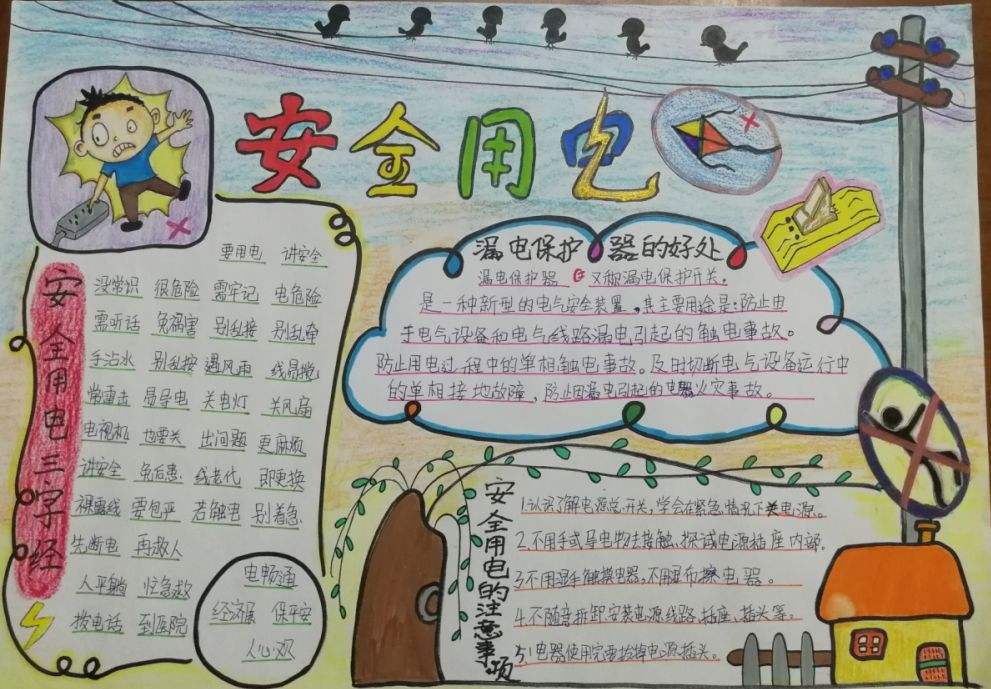 安全用电
安全用电三字经
要用电 讲安全
没常识 很危险 需牢记 电危险
需听话 免祸害 别乱接 别乱牵
手沾水 别乱按 遇风雨 线易搅
常重击 易导电 关电灯 关风扇
电视机 也要关 出问题 更麻烦
讲安全 免后患 线老代 即更换
裸露线 要包严 若触电 别着急
先断电 再救人
人平躺 忙急救
拨电话 到医院
电畅通
经济展 保平安
人心欢
漏电保护器的好处
漏电保护器 又称漏电保护开关。
是一种新型的电气安全装置,其主要用途是:防止由
于电气设备和电气线路漏电引起的触电事故。
防止用电过程中的单相触电事故。及时切断电气设备运行中
的单相接地故障,防止因漏电引起的电器火灾事故。
安全用电的注意事项
1.认识了解电源总开关,学会在紧急情况下关电源。
2.不用手或导电物去接触、探试电源插座内部。
3.不用湿手触摸电器,不用湿布擦电器。
4.不随意拆卸、安装电源线路、插座、插头等。
5.电器使用完要拔掉电源插头。